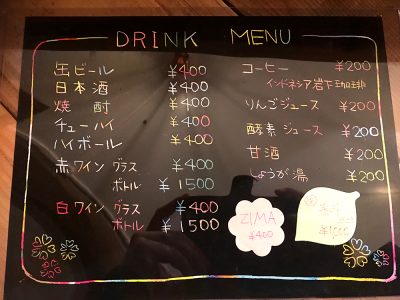 DRINK MENU
缶ビール ¥400
日本酒 ¥400
焼酎 ¥400
チューハイ ¥400
ハイボール ¥400
赤ワイン グラス ¥400
ボトル ¥1500
白ワイン グラス ¥400
ボトル ¥1500
コーヒー ¥200
インドネシア岩下珈琲
りんごジュース ¥200
酵素ジュース ¥200
甘酒 ¥200
しょうが湯 ¥200
ZIMA
¥400
¥1,000